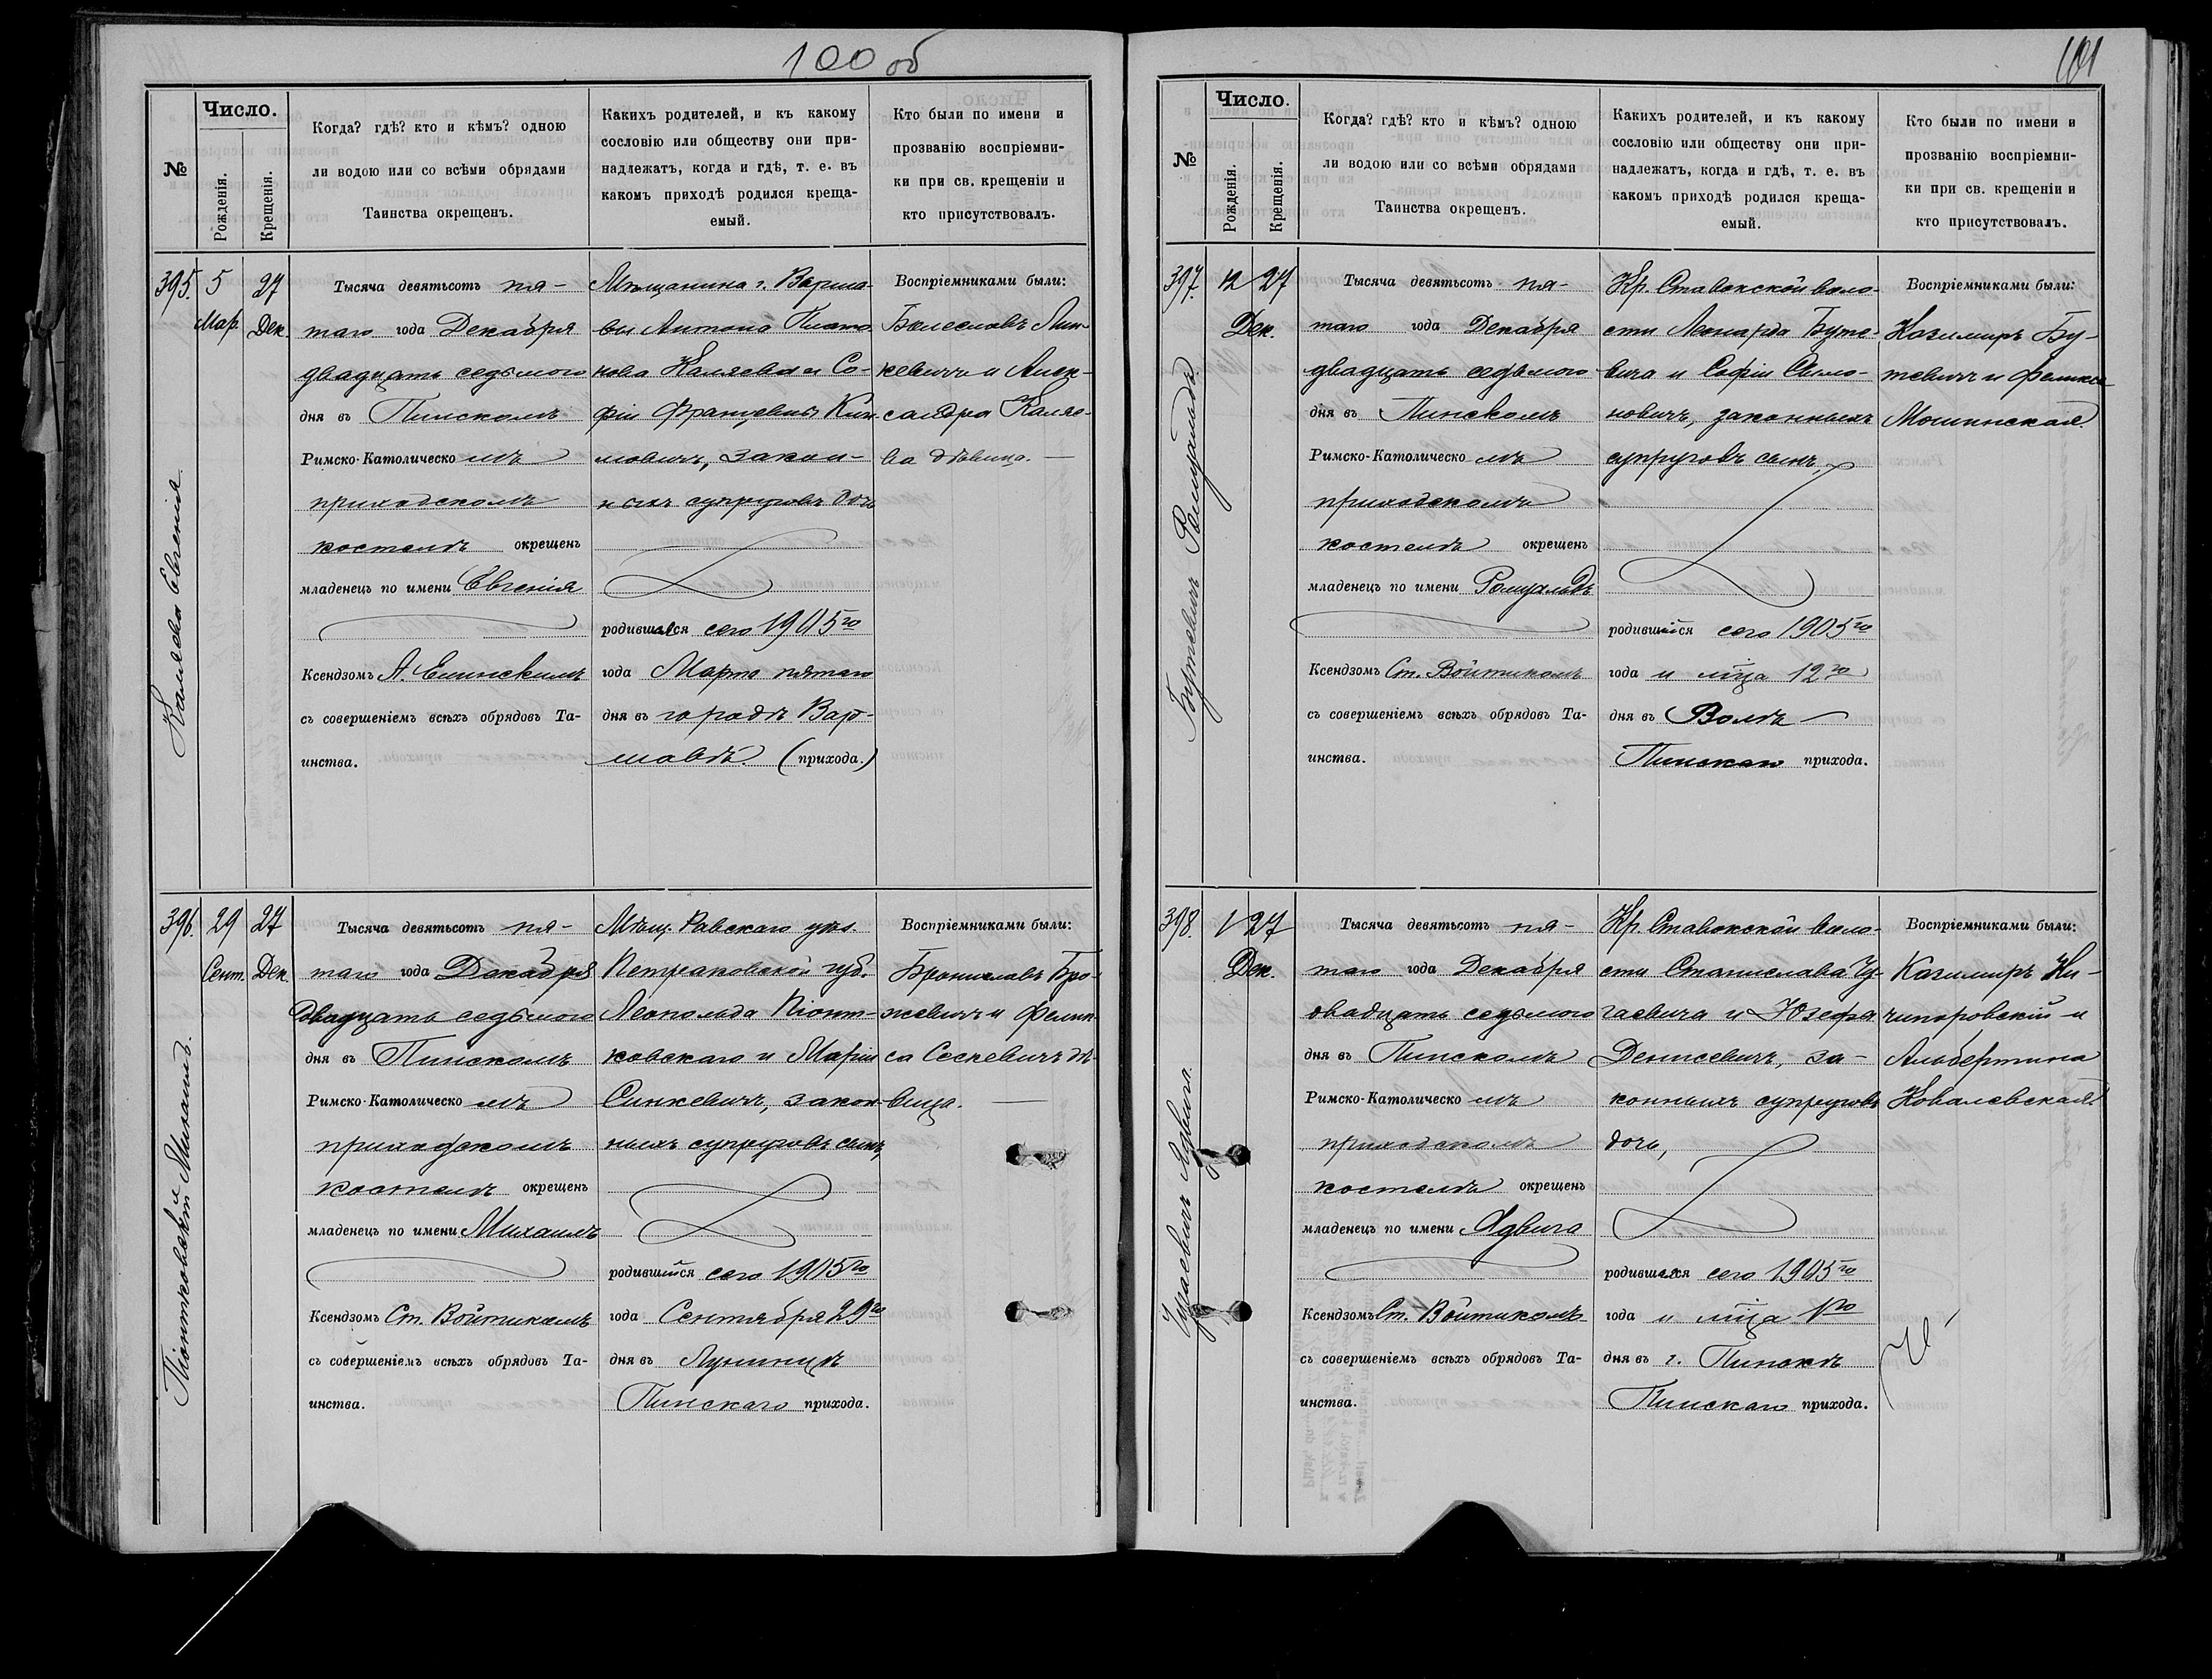 100 об
№
Число.
Рожденія.
Крещенія.
Когда? гдѣ? кто и кѣмъ? одною
ли водою или со всѣми обрядами
Таинства окрещенъ.
Какихъ родителей, и къ какому
сословію или обществу они при-
надлежатъ, когда и гдѣ, т. е. въ
какомъ приходѣ родился креща-
емый.
Кто были по имени и
прозванію воспріемни-
ки при св. крещеніи и
кто присутствовалъ.
395.
Каляева Евгенія
5
Мар.
27
Дек.
Тысяча девятьсотъ пя-
таго года Декабря
двадцать седьмого
дня въ Пинскомъ
Римско-Католическомъ
приходскомъ
костелѣ окрещенъ
младенецъ по имени Евгенія
Ксендзомъ А.
съ совершеніемъ всѣхъ обрядовъ Та-
инства.
Мѣщанина г. Варша-
вы Антона
Каляева и Со-
фіи
законн-
ныхъ супруговъ дочь
родившаяся сего 1905го
года Марта пятаго
дня въ городѣ Вар-
шавѣ. (прихода.)
Воспріемниками были:
Болеславъ Лин-
кевичъ и Алек-
сандра Каляе-
ва дѣвица.
396.
Піонтковскій Михаилъ.
29
Сент.
27
Дек.
Тысяча девятьсотъ пя-
таго года Декабря
двадцать седьмого
дня въ Пинскомъ
Римско-Католическомъ
приходскомъ
костелѣ окрещенъ
младенецъ по имени Михаилъ
Ксендзомъ Ст. Войтикомъ
съ совершеніемъ всѣхъ обрядовъ Та-
инства.
Мѣщ. Равскаго уѣз.
Петраковской губ.
Леопольда Піонт-
ковскаго и Маріи
Синкевичъ, закон-
ныхъ супруговъ сынъ,
родившійся сего 1905го
года Сентября 29го
дня въ Лунинцѣ
Пинскаго прихода.
Воспріемниками были:
Брониславъ Бро-
жевичъ и Фелик-
са Сескевичъ дѣ-
вица.
101
№
Число.
Рожденія.
Крещенія.
Когда? гдѣ? кто и кѣмъ? одною
ли водою или со всѣми обрядами
Таинства окрещенъ.
Какихъ родителей, и къ какому
сословію или обществу они при-
надлежатъ, когда и гдѣ, т. е. въ
какомъ приходѣ родился креща-
емый.
Кто были по имени и
прозванію воспріемни-
ки при св. крещеніи и
кто присутствовалъ.
397.
Бутевичъ Ромуальдъ.
12
27
Дек.
Тысяча девятьсотъ пя-
таго года Декабря
двадцать седьмого
дня въ Пинскомъ
Римско-Католическомъ
приходскомъ
костелѣ окрещенъ
младенецъ по имени Ромуальдъ
Ксендзомъ Ст. Войтикомъ
съ совершеніемъ всѣхъ обрядовъ Та-
инства.
Кр. Ставокской воло-
сти Леонарда Буте-
вича и Софіи
законныхъ
супруговъ сынъ,
родившійся сего 1905го
года и м-ца 12го
дня въ Волѣ
Пинскаго прихода.
Воспріемниками были:
Казимиръ Бу-
тевичъ и Фелиция
Мошинская.
398.
Чугаевичъ Ядвига.
1
27
Дек.
Тысяча девятьсотъ пя-
таго года Декабря
двадцать седьмого
дня въ Пинскомъ
Римско-Католическомъ
приходскомъ
костелѣ окрещенъ
младенецъ по имени Ядвига
Ксендзомъ Ст. Войтикомъ
съ совершеніемъ всѣхъ обрядовъ Та-
инства.
Кр. Ставокской воло-
сти Станислава Чу-
гаевича и Юзефы
Денисевичъ, за-
конныхъ супруговъ
дочь,
родившаяся сего 1905го
года и м-ца 1го
дня въ г. Пинскѣ
Пинскаго прихода.
Воспріемниками были:
Казимиръ Ни-
чипоровскій и
Альбертина
Ковалевская.